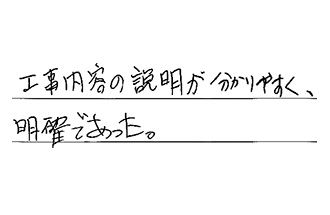 工事内容の説明が分かりやすく、
明確であった。